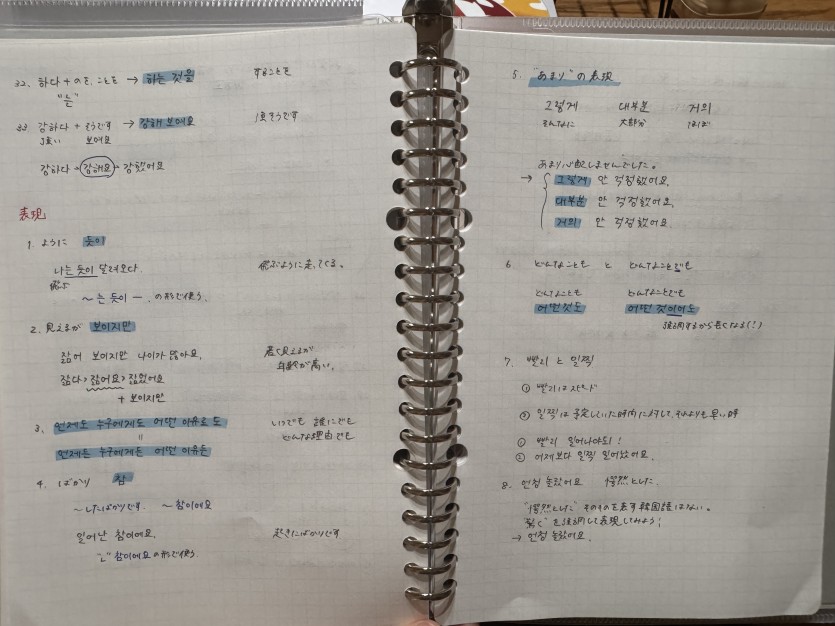 32. 하다 + のを、ことを → 하는 것을 することを
"는"
33 강하다 + そうです → 강해 보여요 強そうです
強い 보여요
강하다 → 강해요 → 강했어요
表現
1. ように 듯이
나는 듯이 달려온다. 飛ぶように走ってくる。
飛ぶ
~는 듯이 ー. の形で使う.
2. 見えるが 보이지만
젊어 보이지만 나이가 많아요. 若く見えるが
年齢が高い.
젊다 > 젊어요 > 젊었어요
+ 보이지만
3. 언제도 누구에게도 어떤 이유로도 いつでも 誰にでも
= どんな理由でも
언제든 누구에게든 어떤 이유든
4. ばかり 참
~したばかりです. ~참이에요
일어난 참이에요. 起きたばかりです
"ㄴ" 참이에요の形で使う.
5. "あまり"の表現
그렇게 대부분 거의
そんなに 大部分 ほぼ
あまり心配しませんでした。
→ 그렇게 안 걱정했어요.
대부분 안 걱정했어요.
거의 안 걱정했어요.
6. どんなことも と どんなことでも
どんなことも どんなことでも
어떤 것도 어떤 것이어도
強調するから長くなる(!)
7. 빨리 と 일찍
① 빨리は スピード
② 일찍は 予定していた時間に対して、それよりも早い時
① 빨리 일어나야돼!
② 어제보다 일찍 일어났어요.
8. 엄청 놀랐어요 愕然とした.
"愕然とした" そのものを表す韓国語はない。
"驚く"を強調して表現してみよう!
→ 엄청 놀랐어요.